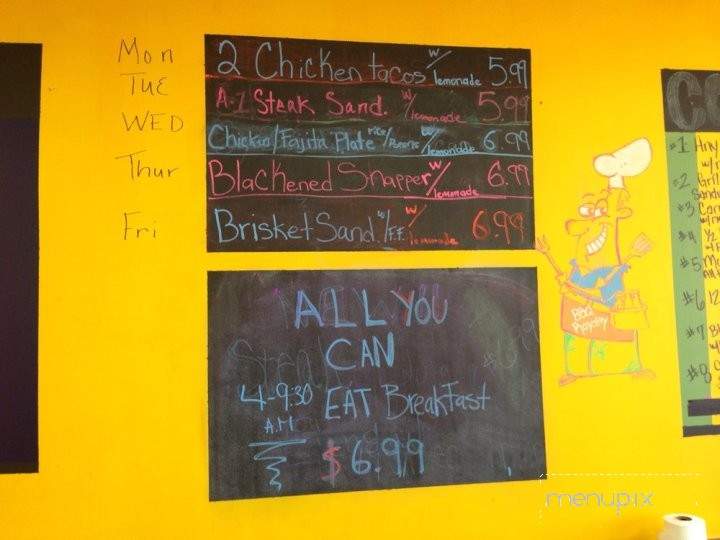 Mon 2 Chicken tacos w/ lemonade 5.99
TUE A-1 Steak Sand. w/ lemonade 5.99
WED Chicken/Fajita Plate rice/Beans w/ lemonade 6.99
Thur Blackened Snapper w/ lemonade 6.99
Fri Brisket Sand. w/F.F. w/ lemonade 6.99
ALL YOU
CAN
4-9:30 EAT Breakfast
A.M
$6.99
BBQ
#1 Any
w/
#2 Grill
Sand
#3
#4 1/2
#5
#6 12
#7
#8
menupix